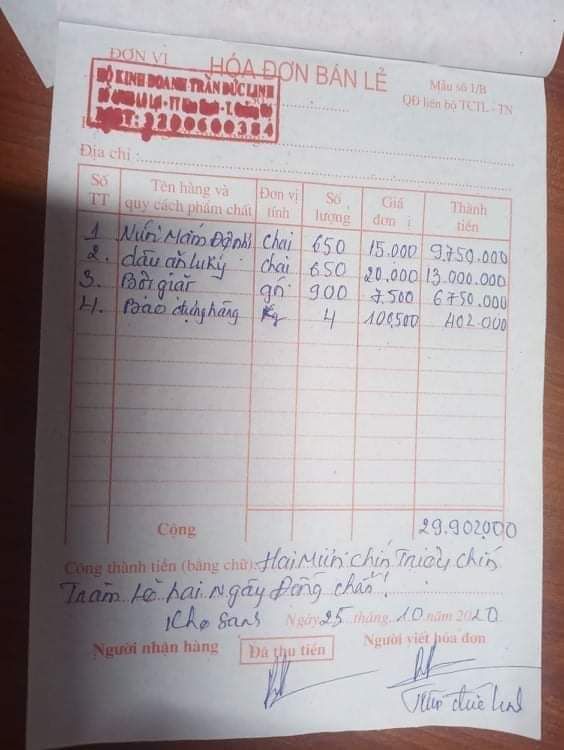 ĐƠN VỊ HÓA ĐƠN BÁN LẺ
Mẫu số 1/B
QĐ liên bộ TCTL - TN
HỘ KINH DOANH TRẦN ĐỨC LINH
3200600384
Địa chỉ :
Số TT Tên hàng và quy cách phẩm chất Đơn vị tính Số lượng Giá đơn Thành tiền
1 Nước Mắm chai 650 15.000 9.750.000
2. dầu ăn chai 650 20.000 13.000.000
3. Bột giặt gói 900 7.500 6.750.000
4. Bao đựng hàng Kg 4 100,500 402.000
Cộng 29.902,000
Cộng thành tiền (bằng chữ): Hai Mươi chín Triệu chín
Trăm lẻ hai Ngày Đồng chẵn!
Khe Sanh Ngày 25 tháng 10 năm 2020
Người nhận hàng Đã thu tiền Người viết hóa đơn
Trần Đức Linh